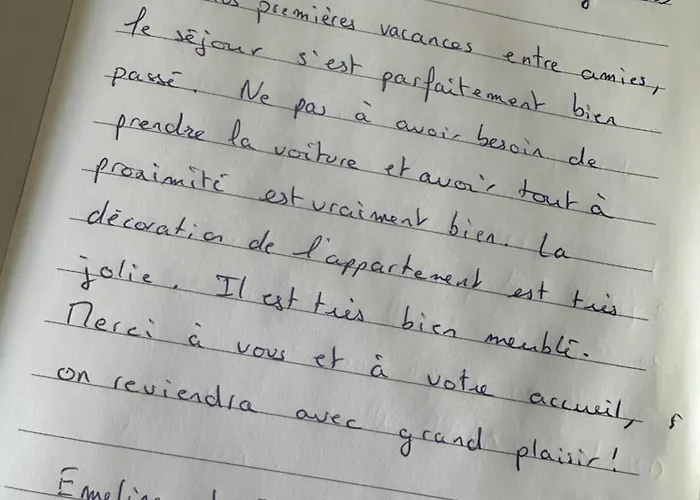 premières vacances entre amies,
le séjour s'est parfaitement bien
passé. Ne pas à avoir besoin de
prendre la voiture et avoir tout à
proximité est vraiment bien. La
décoration de l'appartement est très
jolie. Il est très bien meublé.
Merci à vous et à votre accueil,
on reviendra avec grand plaisir!